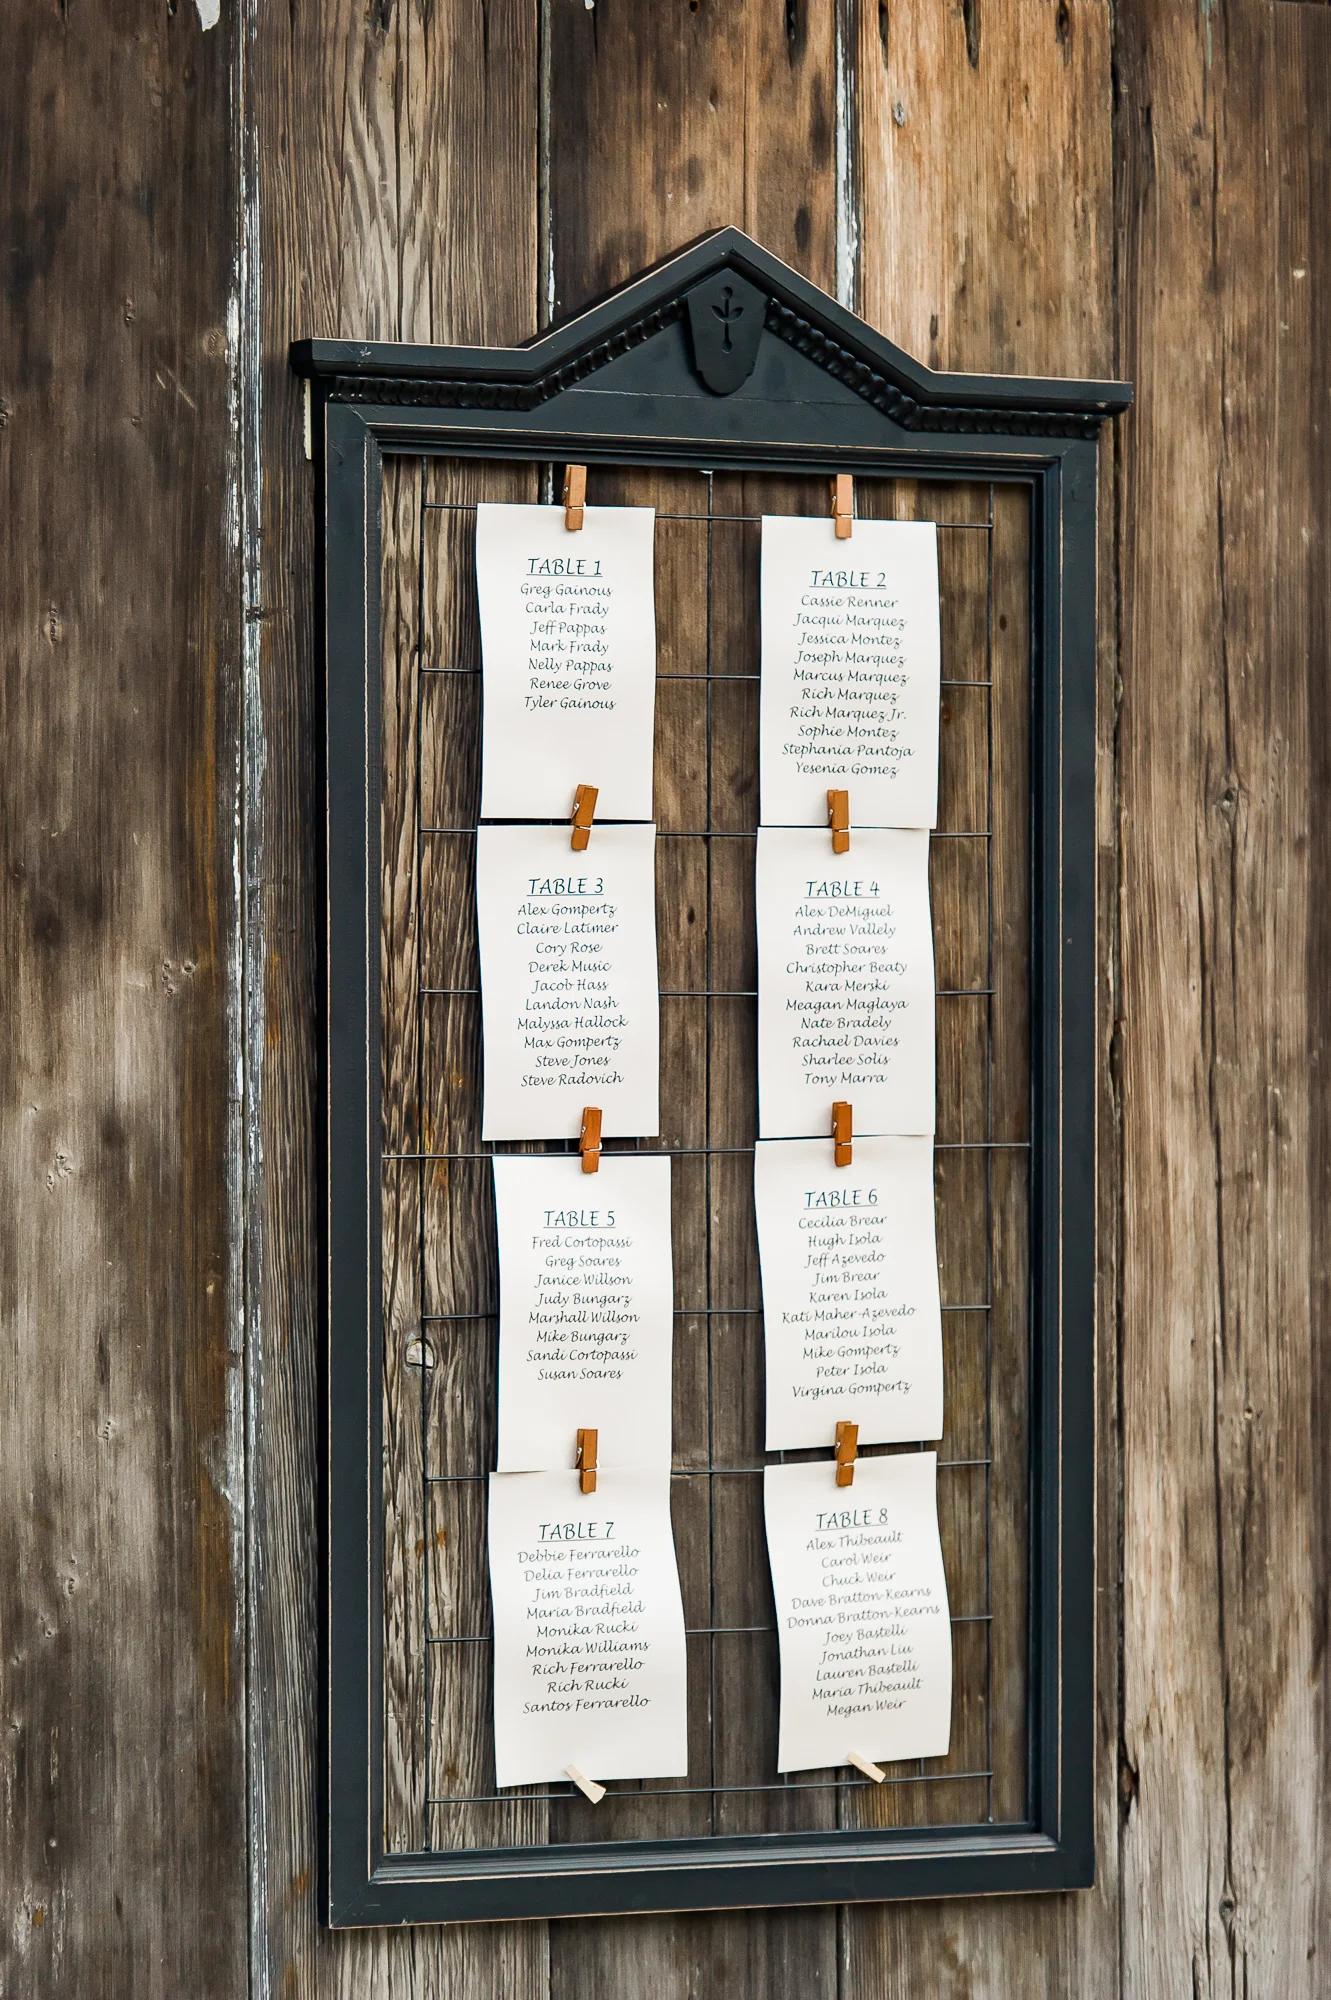 TABLE 1
Greg Gainous
Carla Frady
Jeff Pappas
Mark Frady
Nelly Pappas
Renee Grove
Tyler Gainous
TABLE 2
Cassie Renner
Jacqui Marquez
Jessica Montez
Joseph Marquez
Marcus Marquez
Rich Marquez
Rich Marquez Jr.
Sophie Montez
Stephania Pantoja
Yesenia Gomez
TABLE 3
Alex Gompertz
Claire Latimer
Cory Rose
Derek Music
Jacob Hass
Landon Nash
Malyssa Hallock
Max Gompertz
Steve Jones
Steve Radovich
TABLE 4
Alex DeMiguel
Andrew Vallely
Brett Soares
Christopher Beaty
Kara Merski
Meagan Maglaya
Nate Bradely
Rachael Davies
Sharlee Solis
Tony Marra
TABLE 5
Fred Cortopassi
Greg Soares
Janice Willson
Judy Bungarz
Marshall Willson
Mike Bungarz
Sandi Cortopassi
Susan Soares
TABLE 6
Cecilia Brear
Hugh Isola
Jeff Azevedo
Jim Brear
Karen Isola
Kati Maher-Azevedo
Marilou Isola
Mike Gompertz
Peter Isola
Virgina Gompertz
TABLE 7
Debbie Ferrarello
Delia Ferrarello
Jim Bradfield
Maria Bradfield
Monika Rucki
Monika Williams
Rich Ferrarello
Rich Rucki
Santos Ferrarello
TABLE 8
Alex Thibeault
Carol Weir
Chuck Weir
Dave Bratton-Kearns
Donna Bratton-Kearns
Joey Bastelli
Jonathan Liu
Lauren Bastelli
Maria Thibeault
Megan Weir